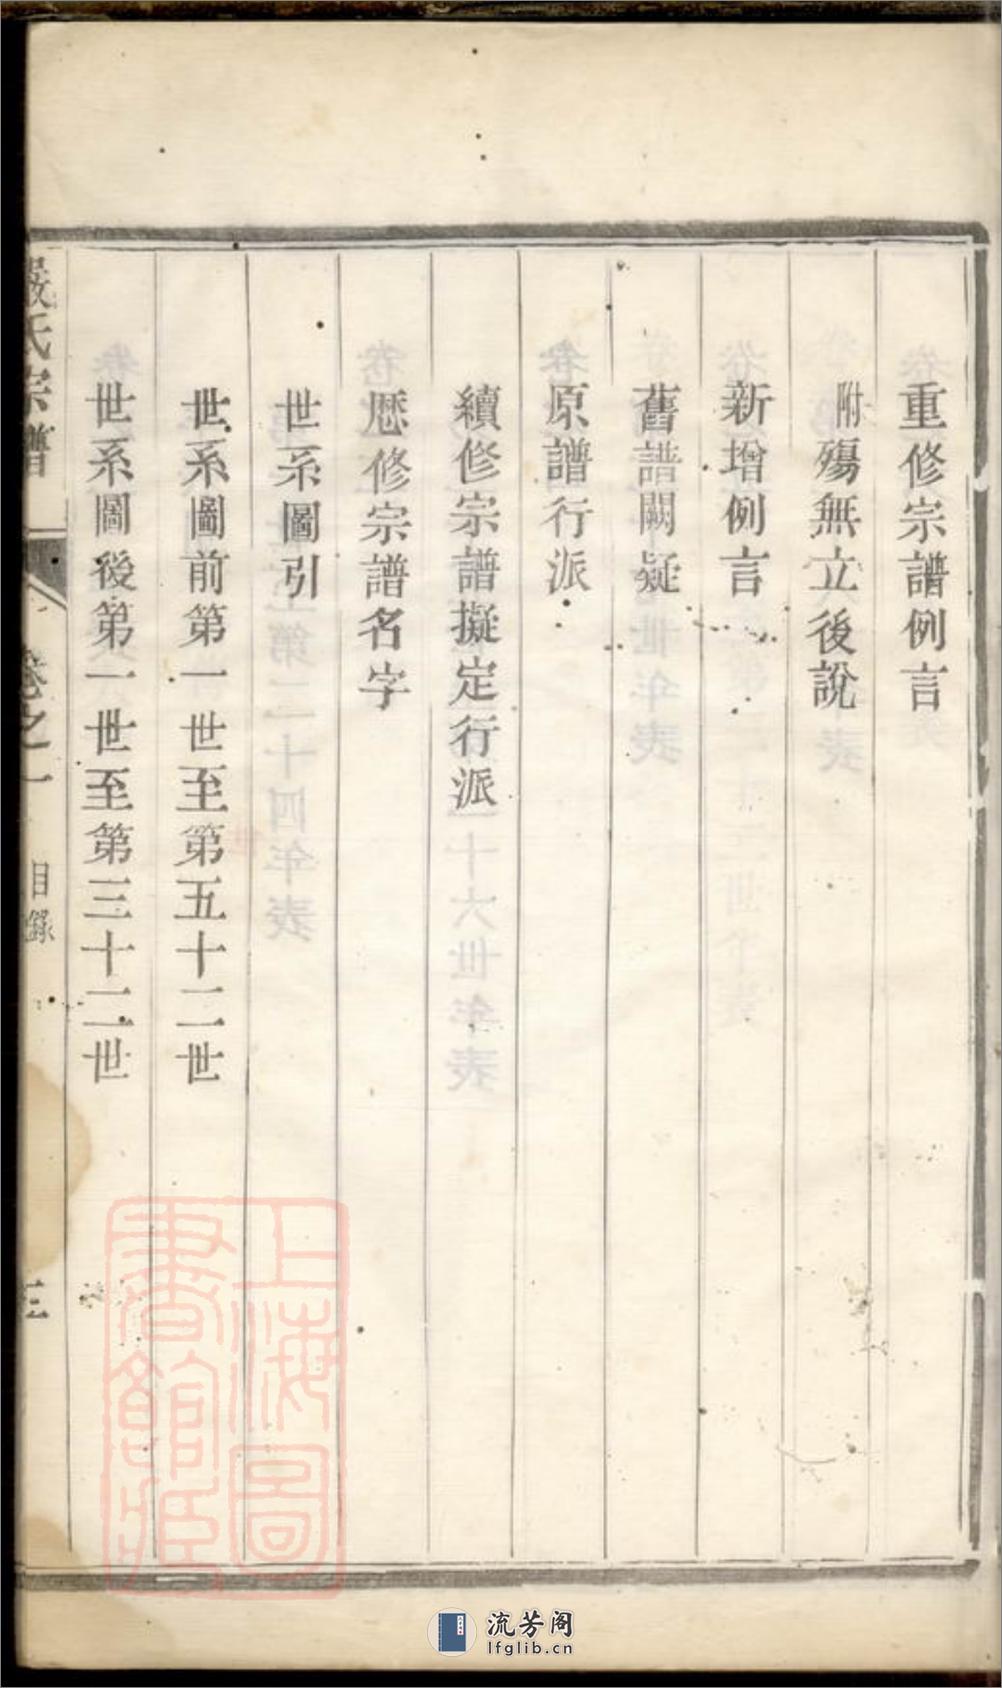 重修宗譜例言
附殤無立後說
新增例言
舊譜闕疑
原譜行派
續修宗譜擬定行派
歷修宗譜名字
世系圖引
世系圖前第一世至第五十二世
世系圖後第一世至第三十二世
嚴氏宗譜 卷之一 目錄 三
上海圖書館藏
流芳阁
lfglib.cn